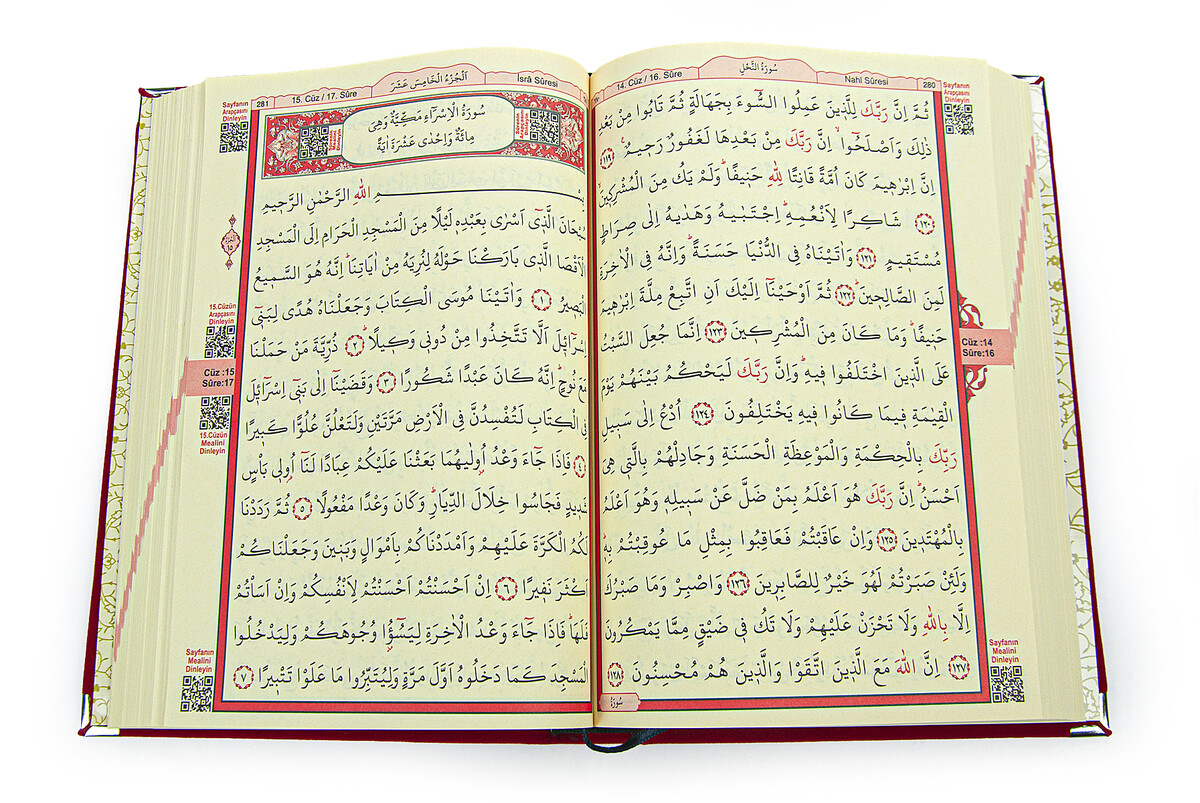 280
Nahl Sûresi
سُورَةُ النَّحْلِ
14. Cüz / 16. Sûre
Sayfanın
Arapçasını
Dinleyin
ثُمَّ اِنَّ رَبَّكَ لِلَّذ۪ينَ عَمِلُوا السُّٓوءَ بِجَهَالَةٍ ثُمَّ تَابُوا مِنْ بَعْدِ
ذٰلِكَ وَاَصْلَحُٓواۙ اِنَّ رَبَّكَ مِنْ بَعْدِهَا لَغَفُورٌ رَح۪يمٌ۟ ﴿١١٩﴾
اِنَّ اِبْرٰه۪يمَ كَانَ اُمَّةً قَانِتًا لِلّٰهِ حَن۪يفًاۜ وَلَمْ يَكُ مِنَ الْمُشْرِك۪ينَۙ
﴿١٢٠﴾ شَاكِرًا لِاَنْعُمِهِۜ اِجْتَبٰيهُ وَهَدٰيهُ اِلٰى صِرَاطٍ
مُسْتَق۪يمٍ ﴿١٢١﴾ وَاٰتَيْنَاهُ فِي الدُّنْيَا حَسَنَةًۜ وَاِنَّهُ فِي الْاٰخِرَةِ
لَمِنَ الصَّالِح۪ينَۜ ﴿١٢٢﴾ ثُمَّ اَوْحَيْنَٓا اِلَيْكَ اَنِ اتَّبِعْ مِلَّةَ اِبْرٰه۪يمَ
حَن۪يفًاۜ وَمَا كَانَ مِنَ الْمُشْرِك۪ينَ ﴿١٢٣﴾ اِنَّمَا جُعِلَ السَّبْتُ
عَلَى الَّذ۪ينَ اخْتَلَفُوا ف۪يهِۜ وَاِنَّ رَبَّكَ لَيَحْكُمُ بَيْنَهُمْ يَوْمَ
الْقِيٰمَةِ ف۪يمَا كَانُوا ف۪يهِ يَخْتَلِفُونَ ﴿١٢٤﴾ اُدْعُ اِلٰى سَب۪يلِ
رَبِّكَ بِالْحِكْمَةِ وَالْمَوْعِظَةِ الْحَسَنَةِ وَجَادِلْهُمْ بِالَّت۪ي هِيَ
اَحْسَنُۜ اِنَّ رَبَّكَ هُوَ اَعْلَمُ بِمَنْ ضَلَّ عَنْ سَب۪يلِه۪ وَهُوَ اَعْلَمُ
بِالْمُهْتَد۪ينَ ﴿١٢٥﴾ وَاِنْ عَاقَبْتُمْ فَعَاقِبُوا بِمِثْلِ مَا عُوقِبْتُمْ بِه۪ۜ
وَلَئِنْ صَبَرْتُمْ لَهُوَ خَيْرٌ لِلصَّابِر۪ينَ ﴿١٢٦﴾ وَاصْبِرْ وَمَا صَبْرُكَ
اِلَّا بِاللّٰهِ وَلَا تَحْزَنْ عَلَيْهِمْ وَلَا تَكُ ف۪ي ضَيْقٍ مِمَّا يَمْكُرُونَ
﴿١٢٧﴾ اِنَّ اللّٰهَ مَعَ الَّذ۪ينَ اتَّقَوْا وَالَّذ۪ينَ هُمْ مُحْسِنُونَ ﴿١٢٨﴾
سُورَةُ
Cüz :14
Sûre:16
Sayfanın
Mealini
Dinleyin
İsrâ Sûresi
اَلْجُزْءُ الْخَامِسَ عَشَرَ
15. Cüz / 17. Sûre
281
Sayfanın
Arapçasını
Dinleyin
سُورَةُ الْاِسْرَٓاءِ مَكِّيَّةٌ وَهِيَ
مِائَةٌ وَاِحْدٰى عَشْرَةَ اٰيَةً
اللّٰهِ الرَّحْمٰنِ الرَّح۪يمِ
الَّذ۪ٓي اَسْرٰى بِعَبْدِه۪ لَيْلًا مِنَ الْمَسْجِدِ الْحَرَامِ اِلَى الْمَسْجِدِ
الَّذ۪ي بَارَكْنَا حَوْلَهُ لِنُرِيَهُ مِنْ اٰيَاتِنَاۜ اِنَّهُ هُوَ السَّم۪يعُ
﴿١﴾ وَاٰتَيْنَا مُوسَى الْكِتَابَ وَجَعَلْنَاهُ هُدًى لِبَن۪ٓي
اَلَّا تَتَّخِذُوا مِنْ دُون۪ي وَك۪يلًاۜ ﴿٢﴾ ذُرِّيَّةَ مَنْ حَمَلْنَا
نُوحٍۜ اِنَّهُ كَانَ عَبْدًا شَكُورًا ﴿٣﴾ وَقَضَيْنَٓا اِلٰى بَن۪ٓي اِسْرَٓائ۪لَ
الْكِتَابِ لَتُفْسِدُنَّ فِي الْاَرْضِ مَرَّتَيْنِ وَلَتَعْلُنَّ عُلُوًّا كَب۪يرًا
﴿٤﴾ فَاِذَا جَٓاءَ وَعْدُ اُو۫لٰيهُمَا بَعَثْنَا عَلَيْكُمْ عِبَادًا لَنَٓا اُو۬ل۪ي بَأْسٍ
فَجَاسُوا خِلَالَ الدِّيَارِۜ وَكَانَ وَعْدًا مَفْعُولًا ﴿٥﴾ ثُمَّ رَدَدْنَا
لَكُمُ الْكَرَّةَ عَلَيْهِمْ وَاَمْدَدْنَاكُمْ بِاَمْوَالٍ وَبَن۪ينَ وَجَعَلْنَاكُمْ
اَكْثَرَ نَف۪يرًا ﴿٦﴾ اِنْ اَحْسَنْتُمْ اَحْسَنْتُمْ لِاَنْفُسِكُمْ وَاِنْ اَسَأْتُمْ
فَلَهَاۜ فَاِذَا جَٓاءَ وَعْدُ الْاٰخِرَةِ لِيَسُٓؤُ۫ا وُجُوهَكُمْ وَلِيَدْخُلُوا
الْمَسْجِدَ كَمَا دَخَلُوهُ اَوَّلَ مَرَّةٍ وَلِيُتَبِّرُوا مَا عَلَوْا تَتْب۪يرًا ﴿٧﴾
15.Cüzün
Arapçasını
Dinleyin
Cüz :15
Sûre:17
15.Cüzün
Mealini
Dinleyin
Sayfanın
Mealini
Dinleyin